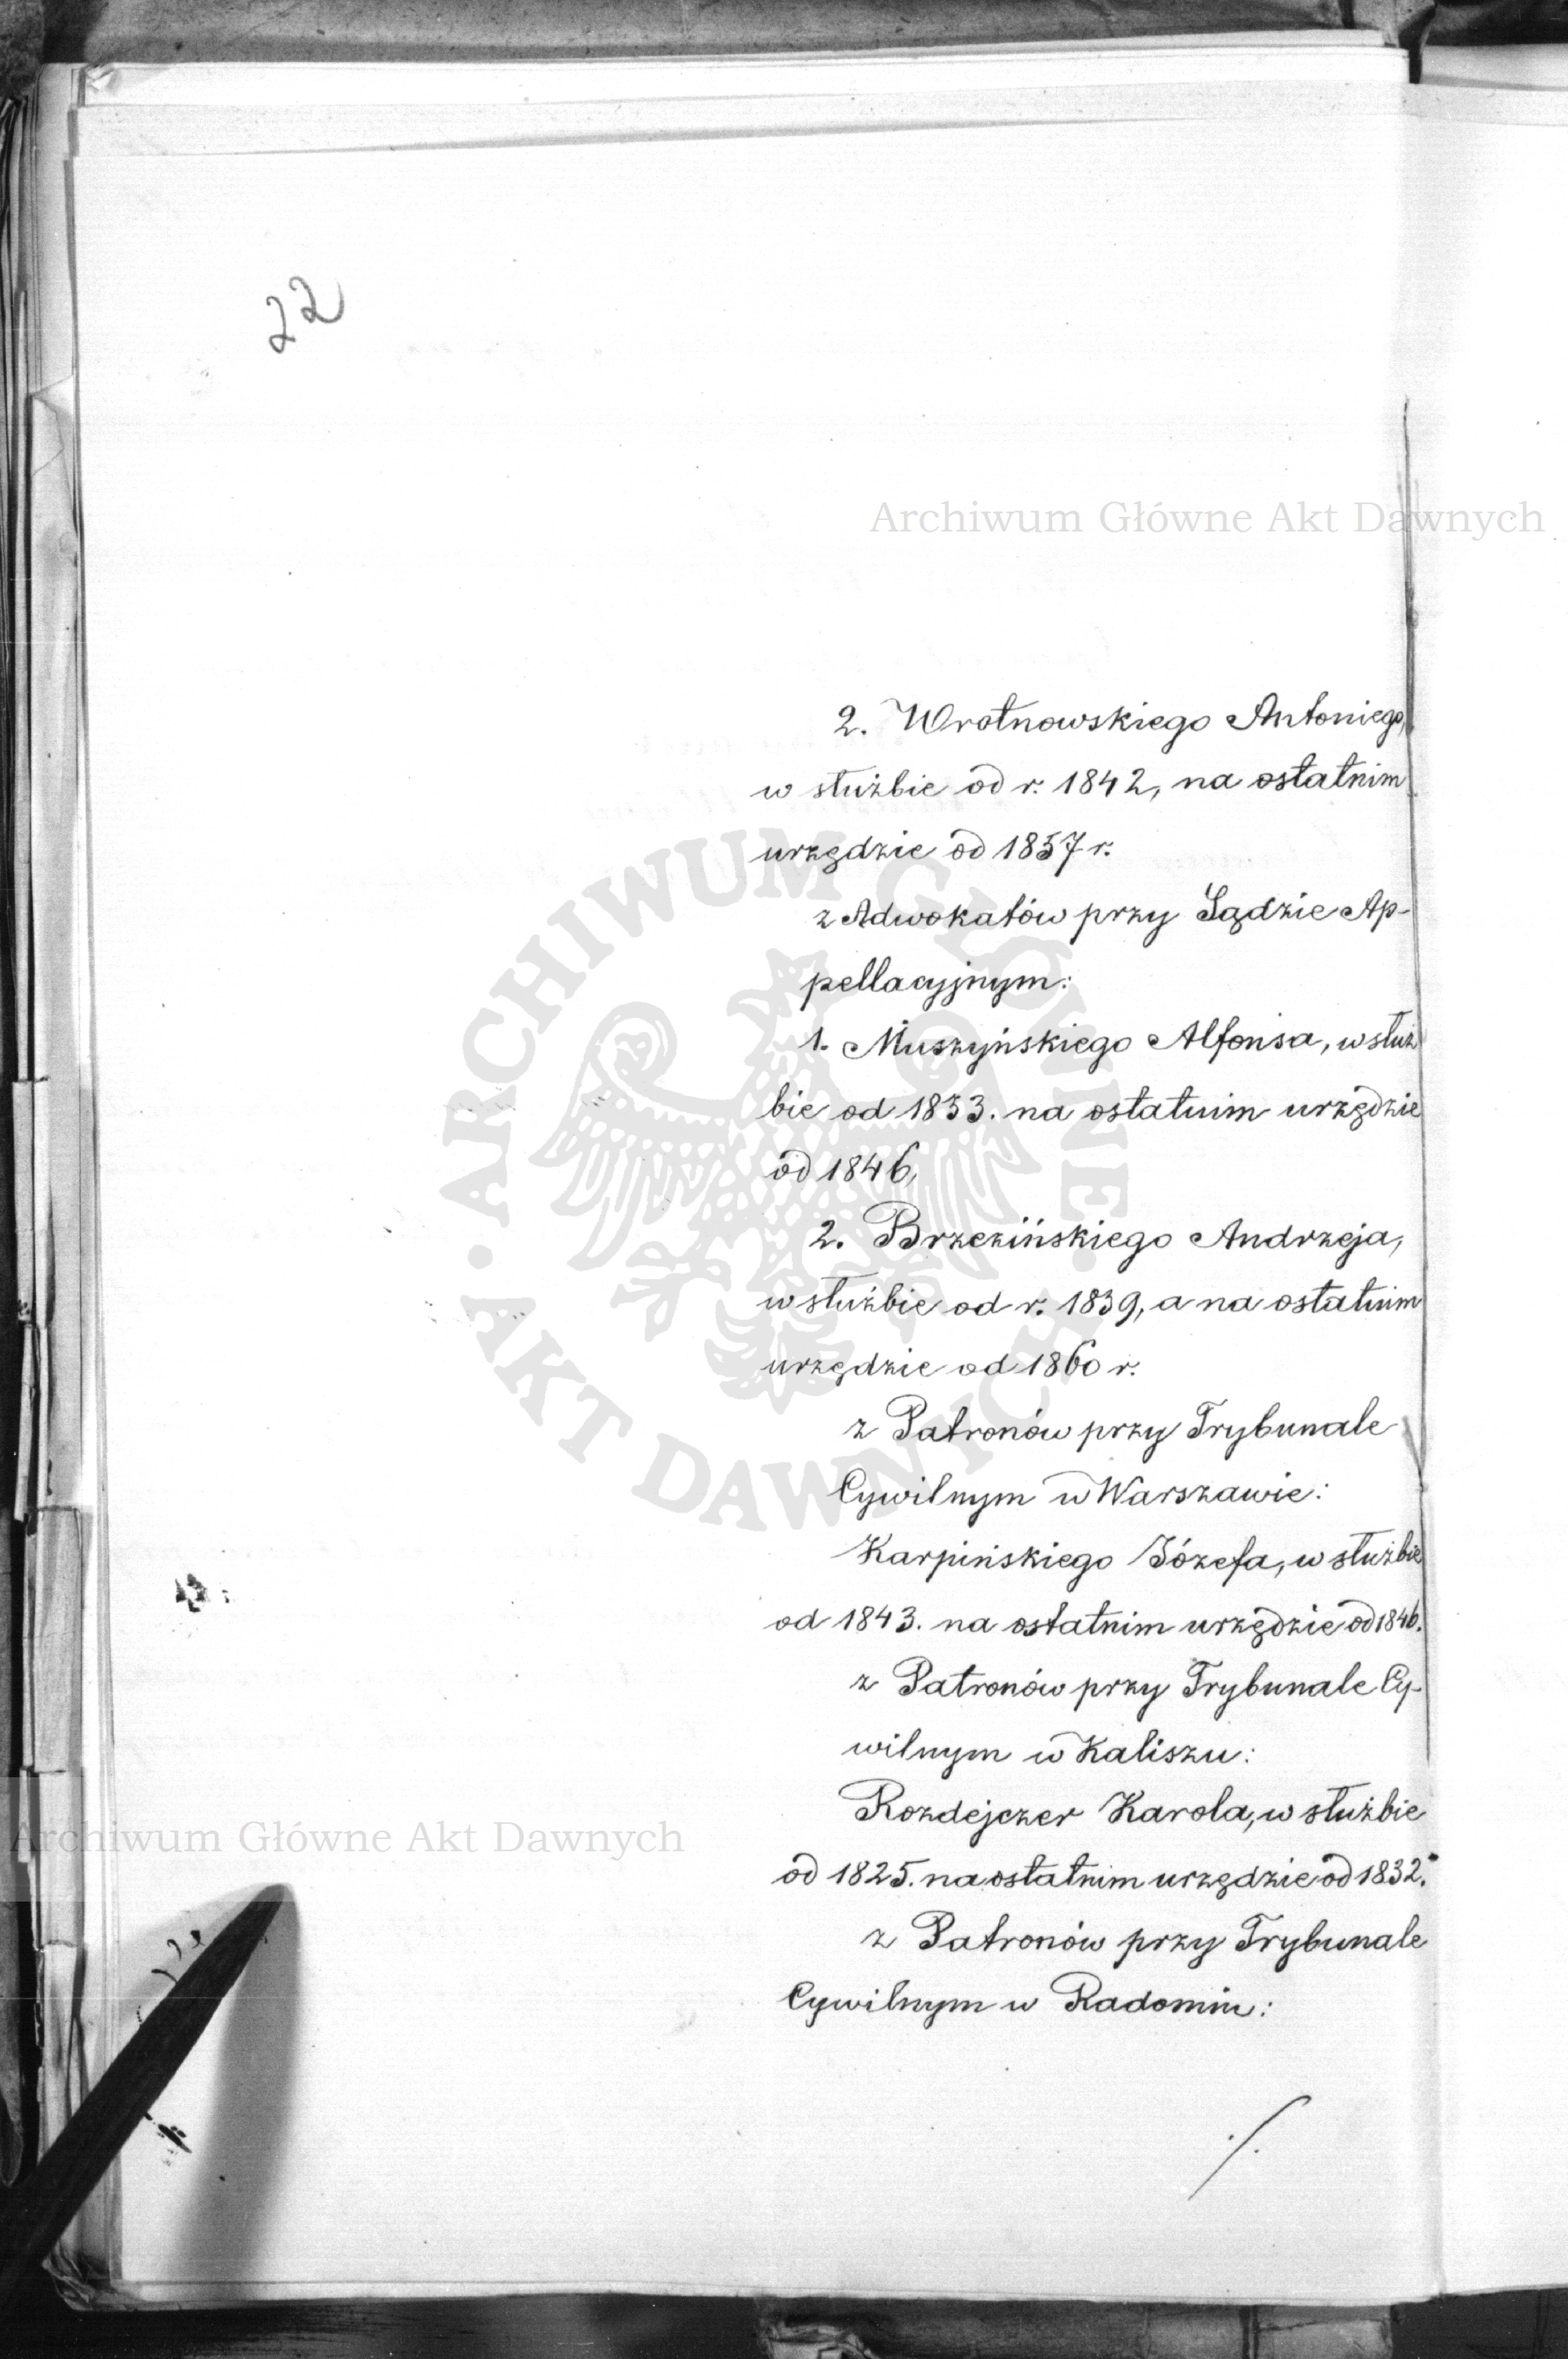 22
Archiwum Główne Akt Dawnych
2. Wrotnowskiego Antoniego,
w służbie od r. 1842, na ostatnim
urzędzie od 1857 r.
z Adwokatów przy Sądzie Ap-
pellacyjnym:
1. Muszyńskiego Alfonsa, w służ
bie od 1833. na ostatnim urzędzie
od 1846,
2. Brzezińskiego Andrzeja,
w służbie od r. 1839, a na ostatnim
urzędzie od 1860 r.
z Patronów przy Trybunale
Cywilnym w Warszawie:
Karpińskiego Józefa, w służbie
od 1843. na ostatnim urzędzie od 1846.
z Patronów przy Trybunale Cy-
wilnym w Kaliszu:
Rozdejczer Karola, w służbie
od 1825. na ostatnim urzędzie od 1832.
z Patronów przy Trybunale
Cywilnym w Radomiu:
./.
ARCHIWUM GŁÓWNE · AKT DAWNYCH ·
Archiwum Główne Akt Dawnych